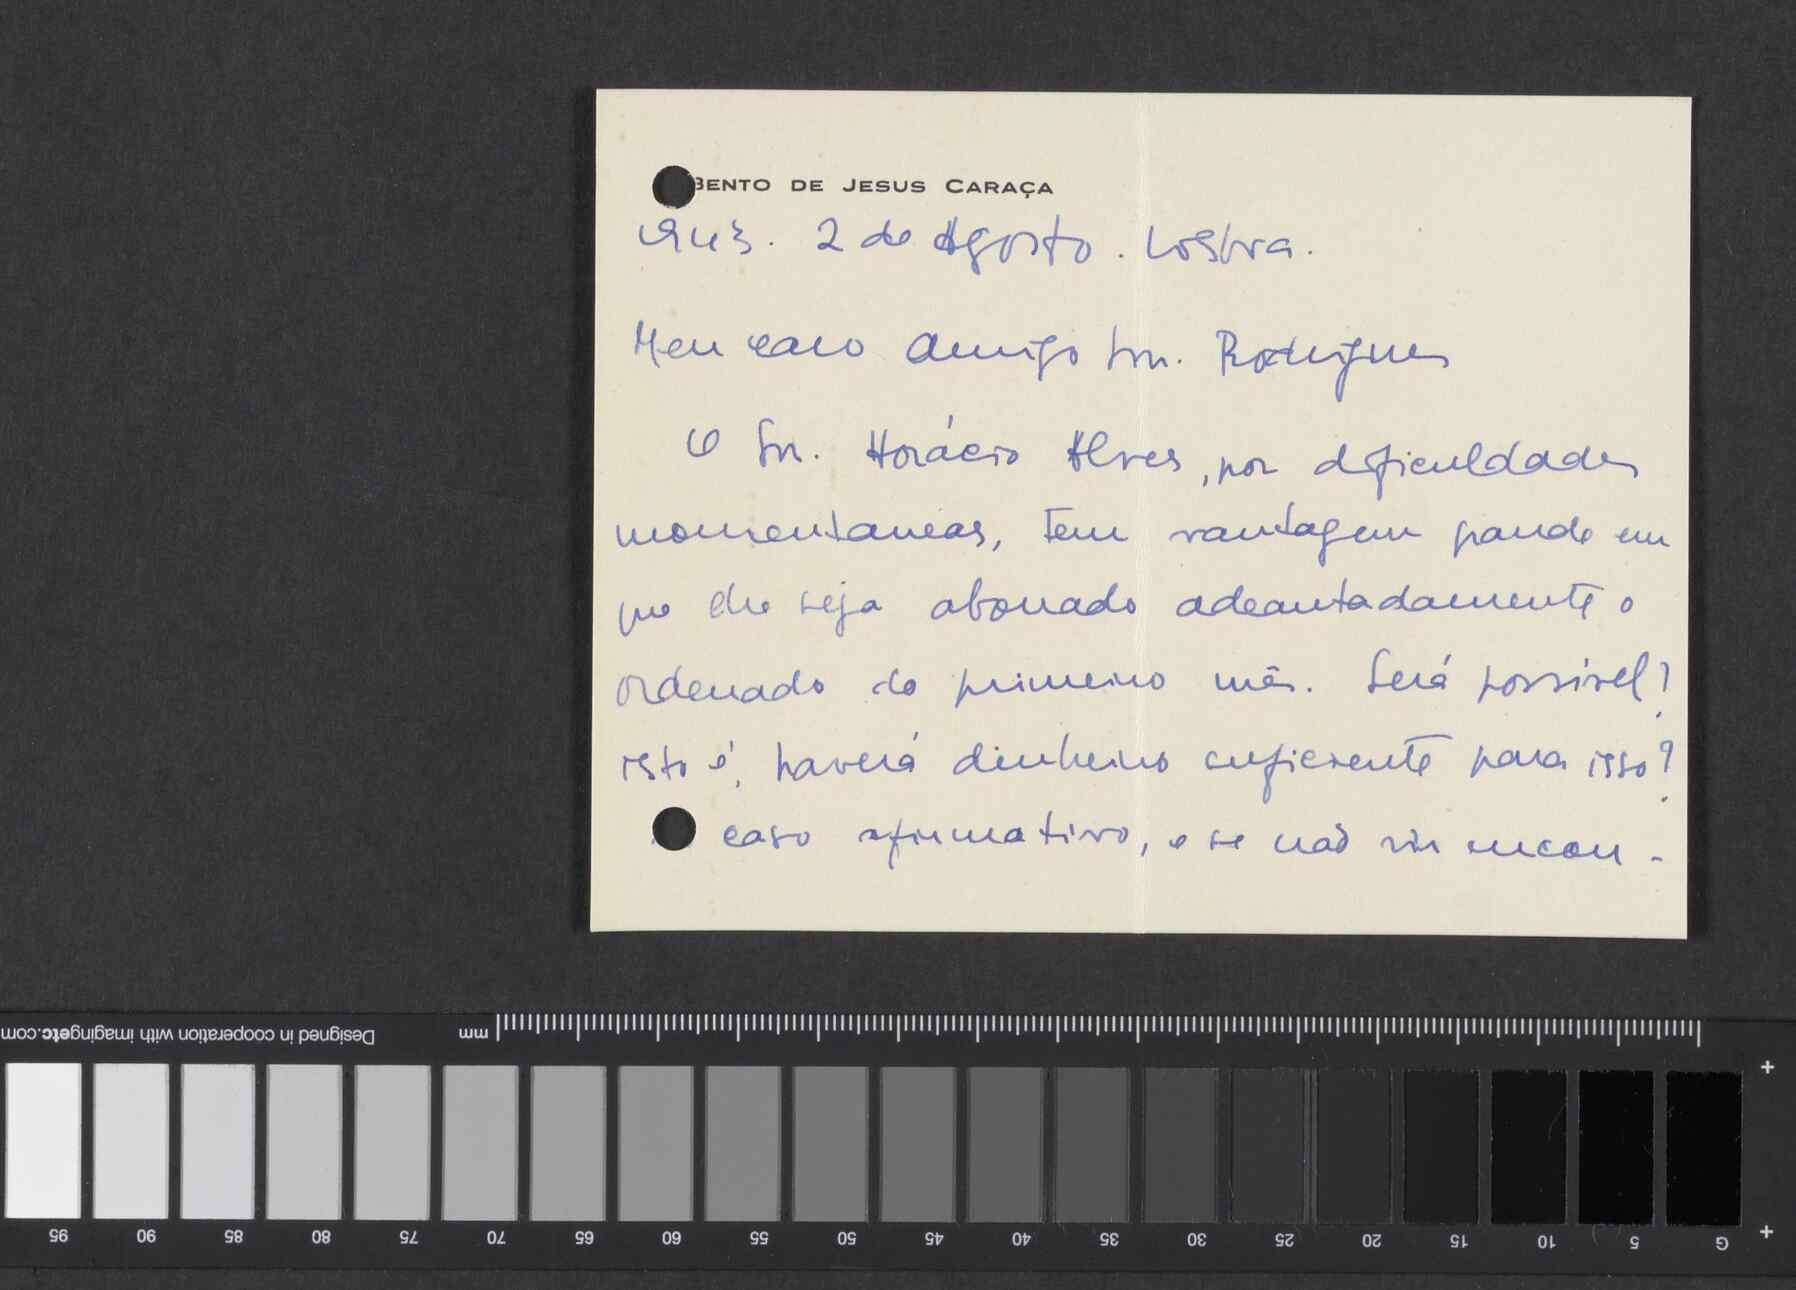 BENTO DE JESUS CARAÇA
1943. 2 de Agosto. Lisboa.
Meu caro Amigo Snr. Rodrigues
O Snr. Horácio Alves, por dificuldades
momentaneas, tem vantagem grande em
que lhe seja abonado adeantadamente o
ordenado do primeiro mês. Será possível?
isto é, haverá dinheiro suficiente para isso?
caso afirmativo, e se não vir incon-
Designed in cooperation with imagingetc.com
mm
95 90 85 80 75 70 65 60 55 50 45 40 35 30 25 20 15 10 5 G